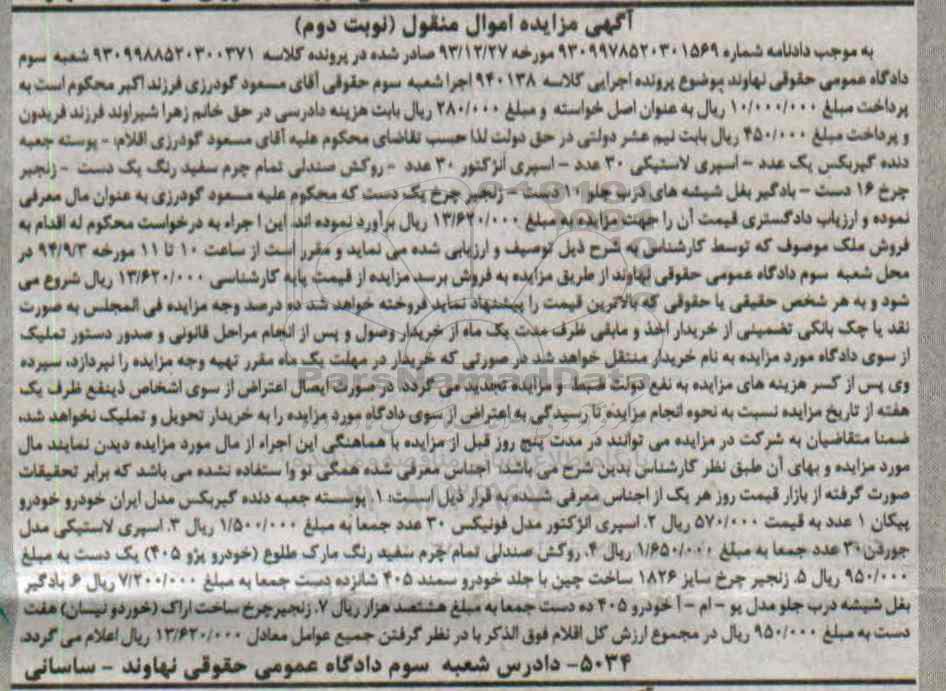 آگهی مزایده اموال منقول (نوبت دوم)
به موجب دادنامه شماره ۹۳۰۹۹۷۸۵۲۰۳۰۱۵۶۹ مورخه ۹۳/۱۲/۲۷ صادر شده در پرونده کلاسه ۹۳۰۹۹۸۸۵۲۰۳۰۰۳۷۱ شعبه سوم
دادگاه عمومی حقوقی نهاوند موضوع پرونده اجرایی کلاسه ۹۴۰۱۳۸ اجرا شعبه سوم حقوقی آقای مسعود گودرزی فرزند اکبر محکوم است به
پرداخت مبلغ ۱۰/۰۰۰/۰۰۰ ریال به عنوان اصل خواسته و مبلغ ۲۸۰/۰۰۰ ریال بابت هزینه دادرسی در حق خانم زهرا شیراوند فرزند فریدون
و پرداخت مبلغ ۴۵۰/۰۰۰ ریال بابت نیم عشر دولتی در حق دولت لذا حسب تقاضای محکوم علیه آقای مسعود گودرزی اقلام، - پوسته جعبه
دنده گیربکس یک عدد - اسپری لاستیکی ۳۰ عدد - اسپری انژکتور ۳۰ عدد - روکش صندلی تمام چرم سفید رنگ یک دست - زنجیر
چرخ ۱۶ دست - بادگیر بغل شیشه های درب جلو ۱۰ دست - زنجیر چرخ یک دست که محکوم علیه مسعود گودرزی به عنوان مال معرفی
نموده و ارزیاب دادگستری قیمت آن را جهت مزایده به مبلغ ۱۳/۶۲۰/۰۰۰ ریال برآورد نموده اند. این اجراء به درخواست محکوم له اقدام به
فروش ملک موصوف که توسط کارشناس به شرح ذیل توصیف و ارزیابی شده می نماید و مقرر است از ساعت ۱۰ تا ۱۱ مورخه ۹۴/۹/۳ در
محل شعبه سوم دادگاه عمومی حقوقی نهاوند از طریق مزایده به فروش برسد مزایده از قیمت پایه کارشناسی ۱۳/۶۲۰/۰۰۰ ریال شروع می
شود و به هر شخص حقیقی یا حقوقی که بالاترین قیمت را پیشنهاد نماید فروخته خواهد شد ده درصد وجه مزایده فی المجلس به صورت
نقد یا چک بانکی تضمینی از خریدار اخذ و مابقی ظرف مدت یک ماه از خریدار وصول و پس از انجام مراحل قانونی و صدور دستور تملیک
از سوی دادگاه مورد مزایده به نام خریدار منتقل خواهد شد در صورتی که خریدار در مهلت یک ماه مقرر تهیه وجه مزایده را نپردازد، سپرده
وی پس از کسر هزینه های مزایده به نفع دولت ضبط و مزایده تجدید می گردد در صورت ایصال اعتراض از سوی اشخاص ذینفع ظرف یک
هفته از تاریخ مزایده نسبت به نحوه انجام مزایده تا رسیدگی به اعتراض از سوی دادگاه مورد مزایده را به خریدار تحویل و تملیک نخواهد شد،
ضمنا متقاضیان به شرکت در مزایده می توانند در مدت پنج روز قبل از مزایده با هماهنگی این اجراء از مال مورد مزایده دیدن نمایند مال
مورد مزایده و بهای آن طبق نظر کارشناس بدین شرح می باشد: اجناس معرفی شده همگی نو وا ستفاده نشده می باشد که برابر تحقیقات
صورت گرفته از بازار قیمت روز هر یک از اجناس معرفی شده به قرار ذیل است: ۱. پوسته جعبه دنده گیربکس مدل ایران خودرو خودرو
پیکان ۱ عدد به قیمت ۵۷۰/۰۰۰ ریال ۲. اسپری انژکتور مدل فونیکس ۳۰ عدد جمعا به مبلغ ۱/۵۰۰/۰۰۰ ریال ۳. اسپری لاستیکی مدل
جورفن ۳۰ عدد جمعا به مبلغ ۱/۶۵۰/۰۰۰ ریال ۴. روکش صندلی تمام چرم سفید رنگ مارک طلوع (خودرو پژو ۴۰۵) یک دست به مبلغ
۹۵۰/۰۰۰ ریال ۵. زنجیر چرخ سایز ۱۸۲۶ ساخت چین با جلد خودرو سمند ۴۰۵ شانزده دست جمعا به مبلغ ۷/۲۰۰/۰۰۰ ریال ۶. بادگیر
بغل شیشه درب جلو مدل یو - ام - آ خودرو ۴۰۵ ده دست جمعا به مبلغ هشتصد هزار ریال ۷. زنجیرچرخ ساخت اراک (خوردو نیسان) هفت
دست به مبلغ ۹۵۰/۰۰۰ ریال در مجموع ارزش کل اقلام فوق الذکر با در نظر گرفتن جمیع عوامل معادل ۱۳/۶۲۰/۰۰۰ ریال اعلام می گردد.
۵۰۳۴- دادرس شعبه سوم دادگاه عمومی حقوقی نهاوند - ساسانی
ParsNamadData